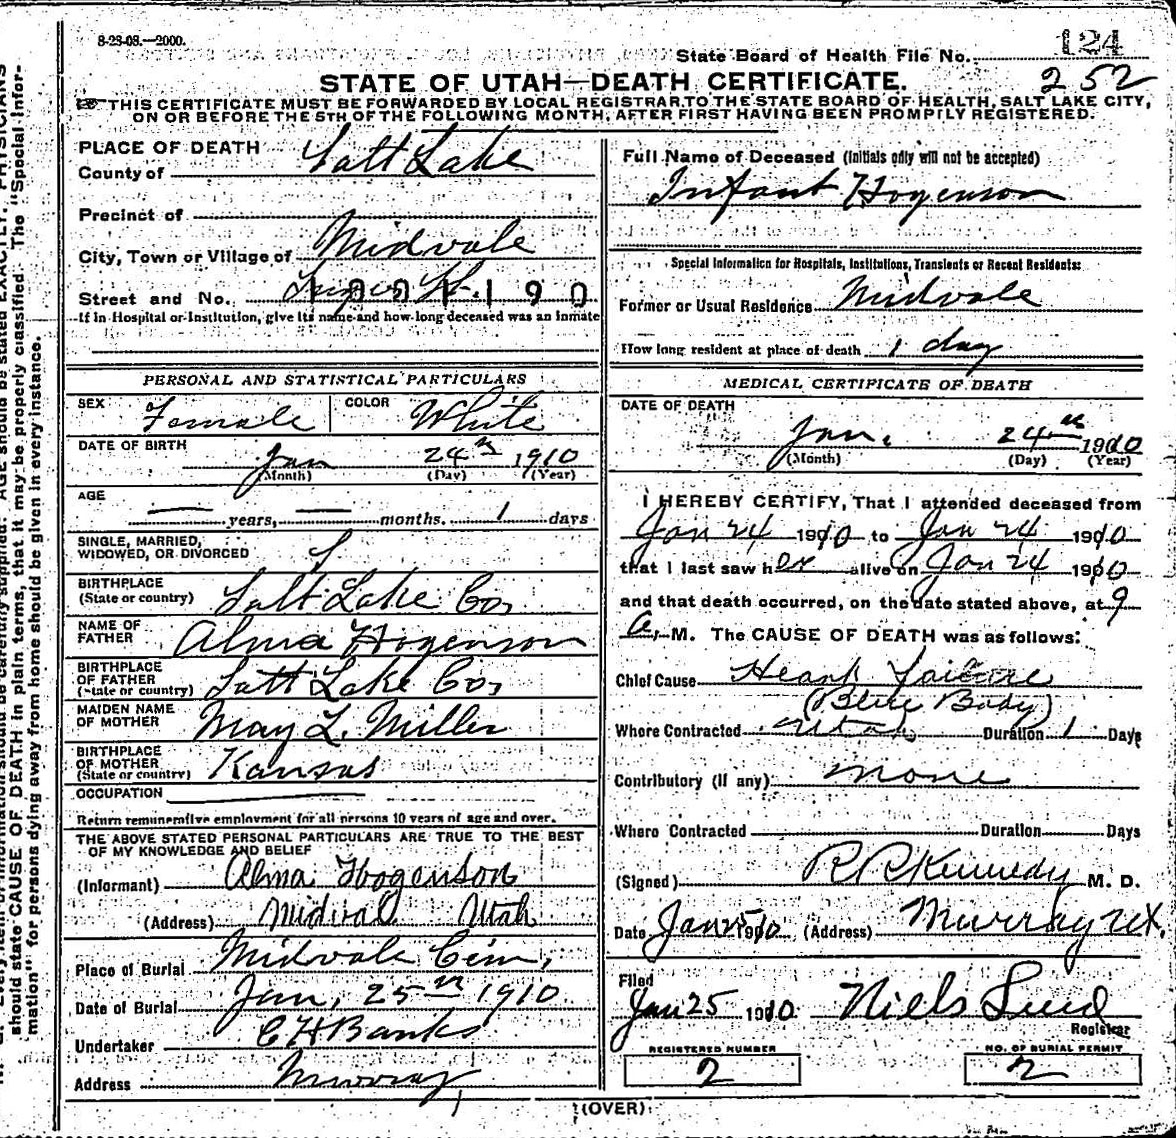 8-23-08.—2000.
124
State Board of Health File No.
252
STATE OF UTAH—DEATH CERTIFICATE.
THIS CERTIFICATE MUST BE FORWARDED BY LOCAL REGISTRAR TO THE STATE BOARD OF HEALTH, SALT LAKE CITY,
ON OR BEFORE THE 5TH OF THE FOLLOWING MONTH, AFTER FIRST HAVING BEEN PROMPTLY REGISTERED.
PLACE OF DEATH
County of Salt Lake
Precinct of
City, Town or Village of Midvale
Street and No. 1001190
If in Hospital or Institution, give its name and how long deceased was an inmate
PERSONAL AND STATISTICAL PARTICULARS
SEX Female COLOR White
DATE OF BIRTH Jan 24th 1910
(Month) (Day) (Year)
AGE
— years, — months. 1 days
SINGLE, MARRIED,
WIDOWED, OR DIVORCED S
BIRTHPLACE
(State or country) Salt Lake Co,
NAME OF
FATHER Alma Hogenson
BIRTHPLACE
OF FATHER
(State or country) Salt Lake Co,
MAIDEN NAME
OF MOTHER May L. Miller
BIRTHPLACE
OF MOTHER
(State or country) Kansas
OCCUPATION
Return remunerative employment for all persons 10 years of age and over.
THE ABOVE STATED PERSONAL PARTICULARS ARE TRUE TO THE BEST
OF MY KNOWLEDGE AND BELIEF
(Informant) Alma Hogenson
(Address) Midvale Utah
Place of Burial Midvale Cem,
Date of Burial Jan, 25th 1910
Undertaker C H Banks
Address Murray
Full Name of Deceased (Initials only will not be accepted)
Infant Hogenson
Special Information for Hospitals, Institutions, Transients or Recent Residents:
Former or Usual Residence Midvale
How long resident at place of death 1 day
MEDICAL CERTIFICATE OF DEATH
DATE OF DEATH
Jan. 24th 1910
(Month) (Day) (Year)
I HEREBY CERTIFY, That I attended deceased from
Jan 24 1910 to Jan 24 1910
that I last saw her alive on Jan 24 1910
and that death occurred, on the date stated above, at 9
A. M. The CAUSE OF DEATH was as follows:
Chief Cause Heart Failure
(Blue Body)
Where Contracted Utah Duration 1 Days
Contributory (if any) none
Where Contracted Duration Days
(Signed) R R Kennedy M. D.
Date Jan 25 1910 (Address) Murray Ut.
Filed
Jan 25 1910 Niels Lind
Registrar
REGISTERED NUMBER
2
NO. OF BURIAL PERMIT
2
(OVER)
should state CAUSE OF DEATH in plain terms, that it may be properly classified. The "Special Infor-
mation" for persons dying away from home should be given in every instance.